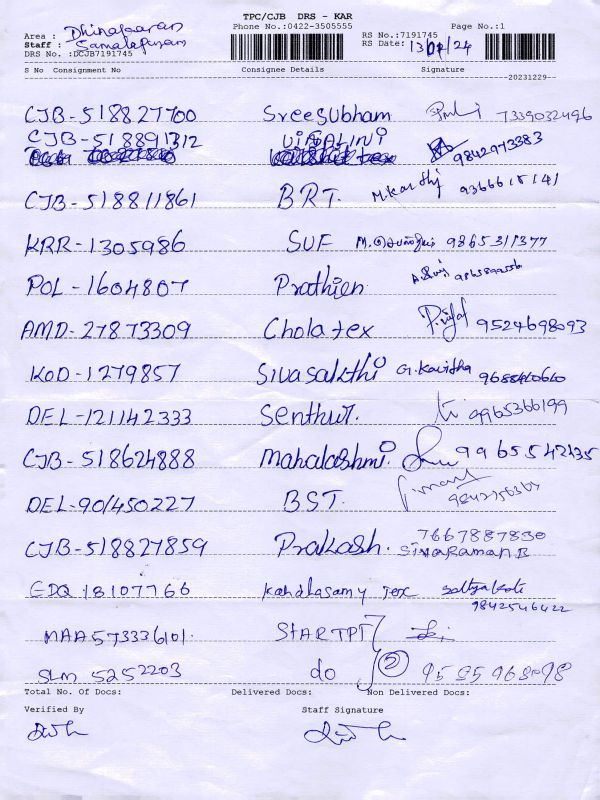 TPC/CJB DRS - KAR
Phone No.:0422-3505555 Page No.:1
Area : Dhinakaran
Staff : Samalapuram
RS No.:7191745
RS Date: 13/04/24
DRS No. :DCJB7191745
S No Consignment No Consignee Details Signature
20231229
CJB-518827700 Sreesubham 7339032496
CJB-518891312 VISALINI 9842973383
CJB-518811861 BRT. M.Karthi 9366615141
KRR-1305986 SUF 9865311377
POL-1604807 Prathien
AMD-27873309 Cholatex 9524698093
KOD-1279857 Sivasakthi G.Kavitha
DEL-121142333 Senthur. 9965366199
CJB-518624888 Mahalashmi. 9965542135
DEL-901450227 BST.
CJB-518827859 Prakash. 7667887830
SIVARAMAN B
EDQ 18107766 Kandasamy Tex
9842546422
MAA573336101 STARTPT
SLM 5252203 do (2) 9595968098
Total No. Of Docs: Delivered Docs: Non Delivered Docs:
Verified By Staff Signature